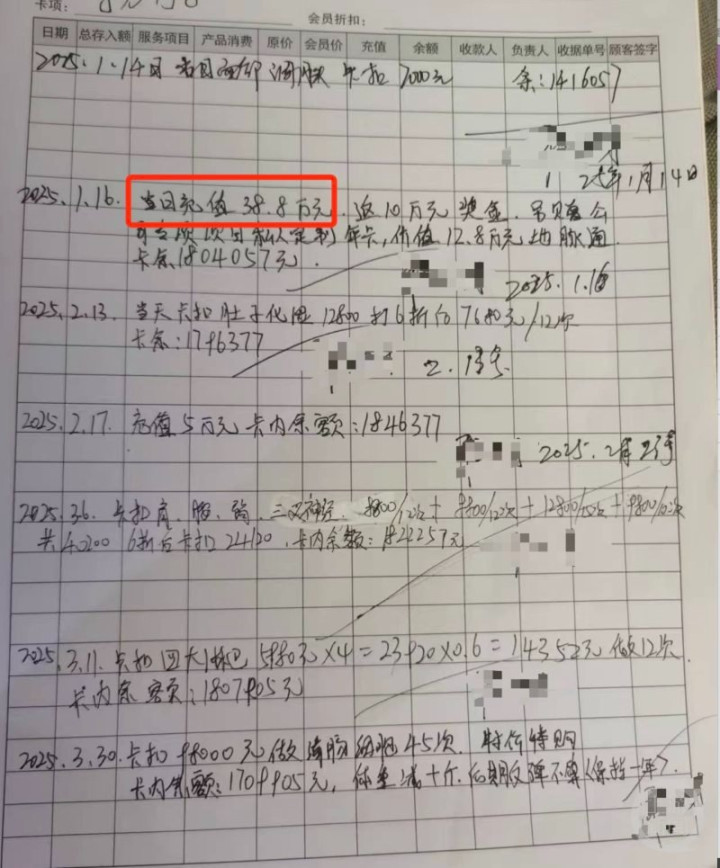 卡项:
会员折扣:
日期 总存入额 服务项目 产品消费 原价 会员价 充值 余额 收款人 负责人 收据单号 顾客签字
2025.1.14日 当日 调 卡扣 7000元 余:1416057
25年1月14日
2025.1.16. 当日充值 38.8万元. 返10万元奖金.
年卡,价值12.8万元
卡余1804057元.
2025.1.16
2025.2.13. 当天卡扣肚子化 12800打6折后7680元/12次
卡余:1796377
2.13号
2025.2.17. 充值5万元 卡内余额:1846377
2025.2月23号
2025.3.6. 卡扣肩、 三叉神经、 9800/12次+9800/12次+12800/12次+9800/12次
共40200 6折后卡扣24120.卡内余额:1822257元
2025.3.11.卡扣四大淋巴5980元×4=23920×0.6=14352元 做12次.
卡内余额:1807905元
2025.3.30.卡扣98000元做 45次. 特价特购
卡内余额:1709905元, 体重减十斤.后期反弹不算(保持一年).